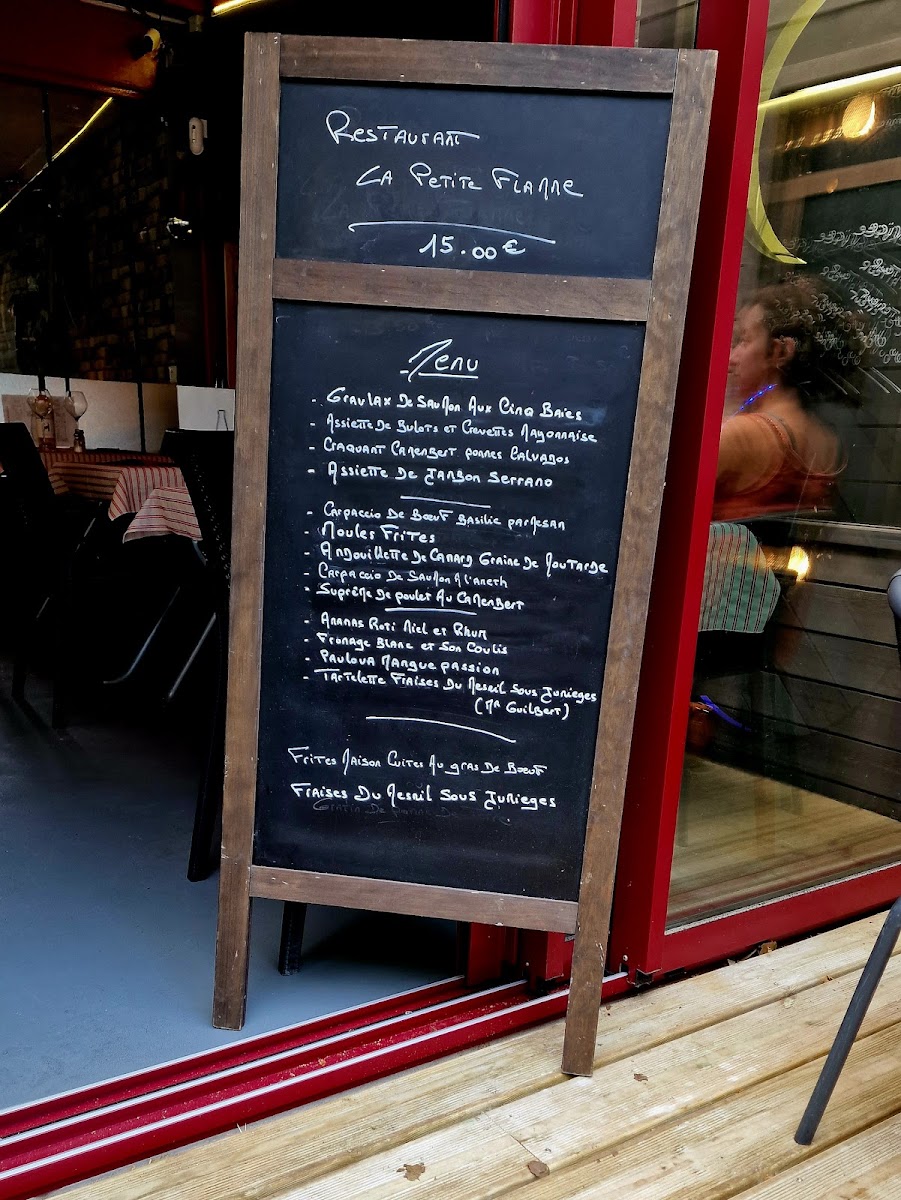 Restaurant
La Petite Flamme
15.00€
Menu
- Gravlax De Saumon Aux Cinq Baies
- Assiette De Bulots et Crevettes Mayonnaise
- Craquant Camembert pommes Calvados
- Assiette De Jambon Serrano
- Carpaccio De Bœuf Basilic parmesan
- Moules Frites
- Andouillette De Canard Graine De Moutarde
- Carpaccio De Saumon A l'aneth
- Suprême De poulet Au Camembert
- Ananas Roti Miel et Rhum
- Fromage Blanc et Son Coulis
- Pavlova Mangue passion
- Tartelette Fraises Du Mesnil Sous Jumieges
(Mr Guilbert)
Frites Maison Cuites Au gras De Bœuf
Fraises Du Mesnil Sous Jumieges